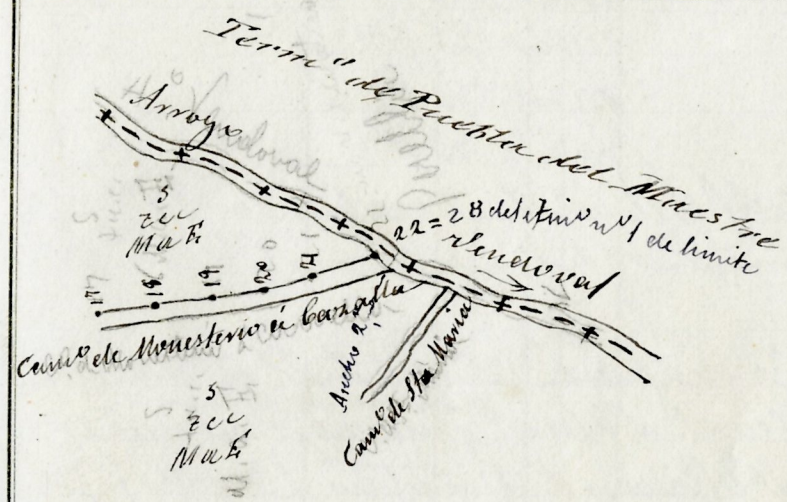 Termº de Puebla del Maestre
Arroyo
Sendoval
22 = 28 del itinº nº 1 de limite
S
Zcc
Ma E
17 18 19 20 21
Camº de Monesterio á Cazalla
Ancho 2
Camº de Sta Maria
S
Zcc
Ma E